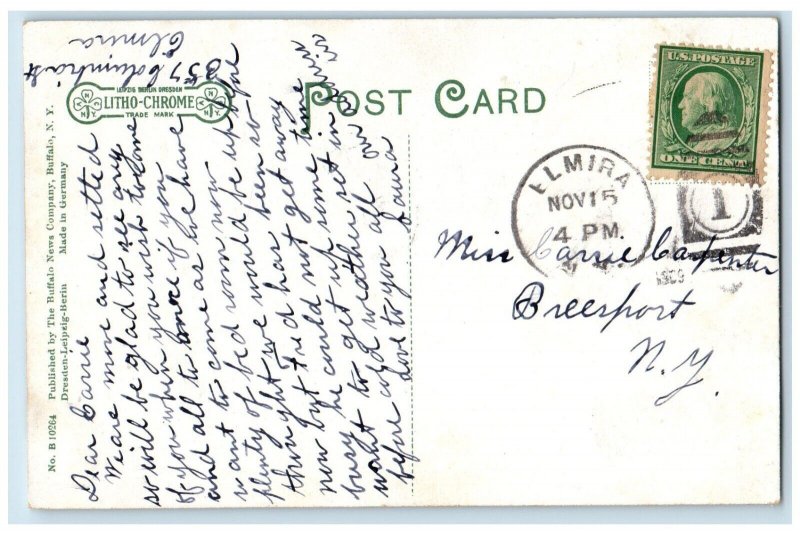 357 Columbia St
Elmira
LEIPZIG BERLIN DRESDEN
LITHO-CHROME
TRADE MARK
POST CARD
U.S. POSTAGE
ONE CENT
ELMIRA
NOV 15
4 PM
N.Y.
1909
1
Miss Carrie Carpenter
Breesport
N.Y.
No. B 10264 Published by The Buffalo News Company, Buffalo, N. Y.
Dresden-Leipzig-Berin Made in Germany
Dear Carrie
We are move and setted
so will be glad to see any
of you when you wish to come
and all to once if you
want to come as we have
plenty of bed room now
thought we would be up one
now but Fred has been so
busy he could not get away
want to get up some time
before cold weather set in
love to you all
Laura